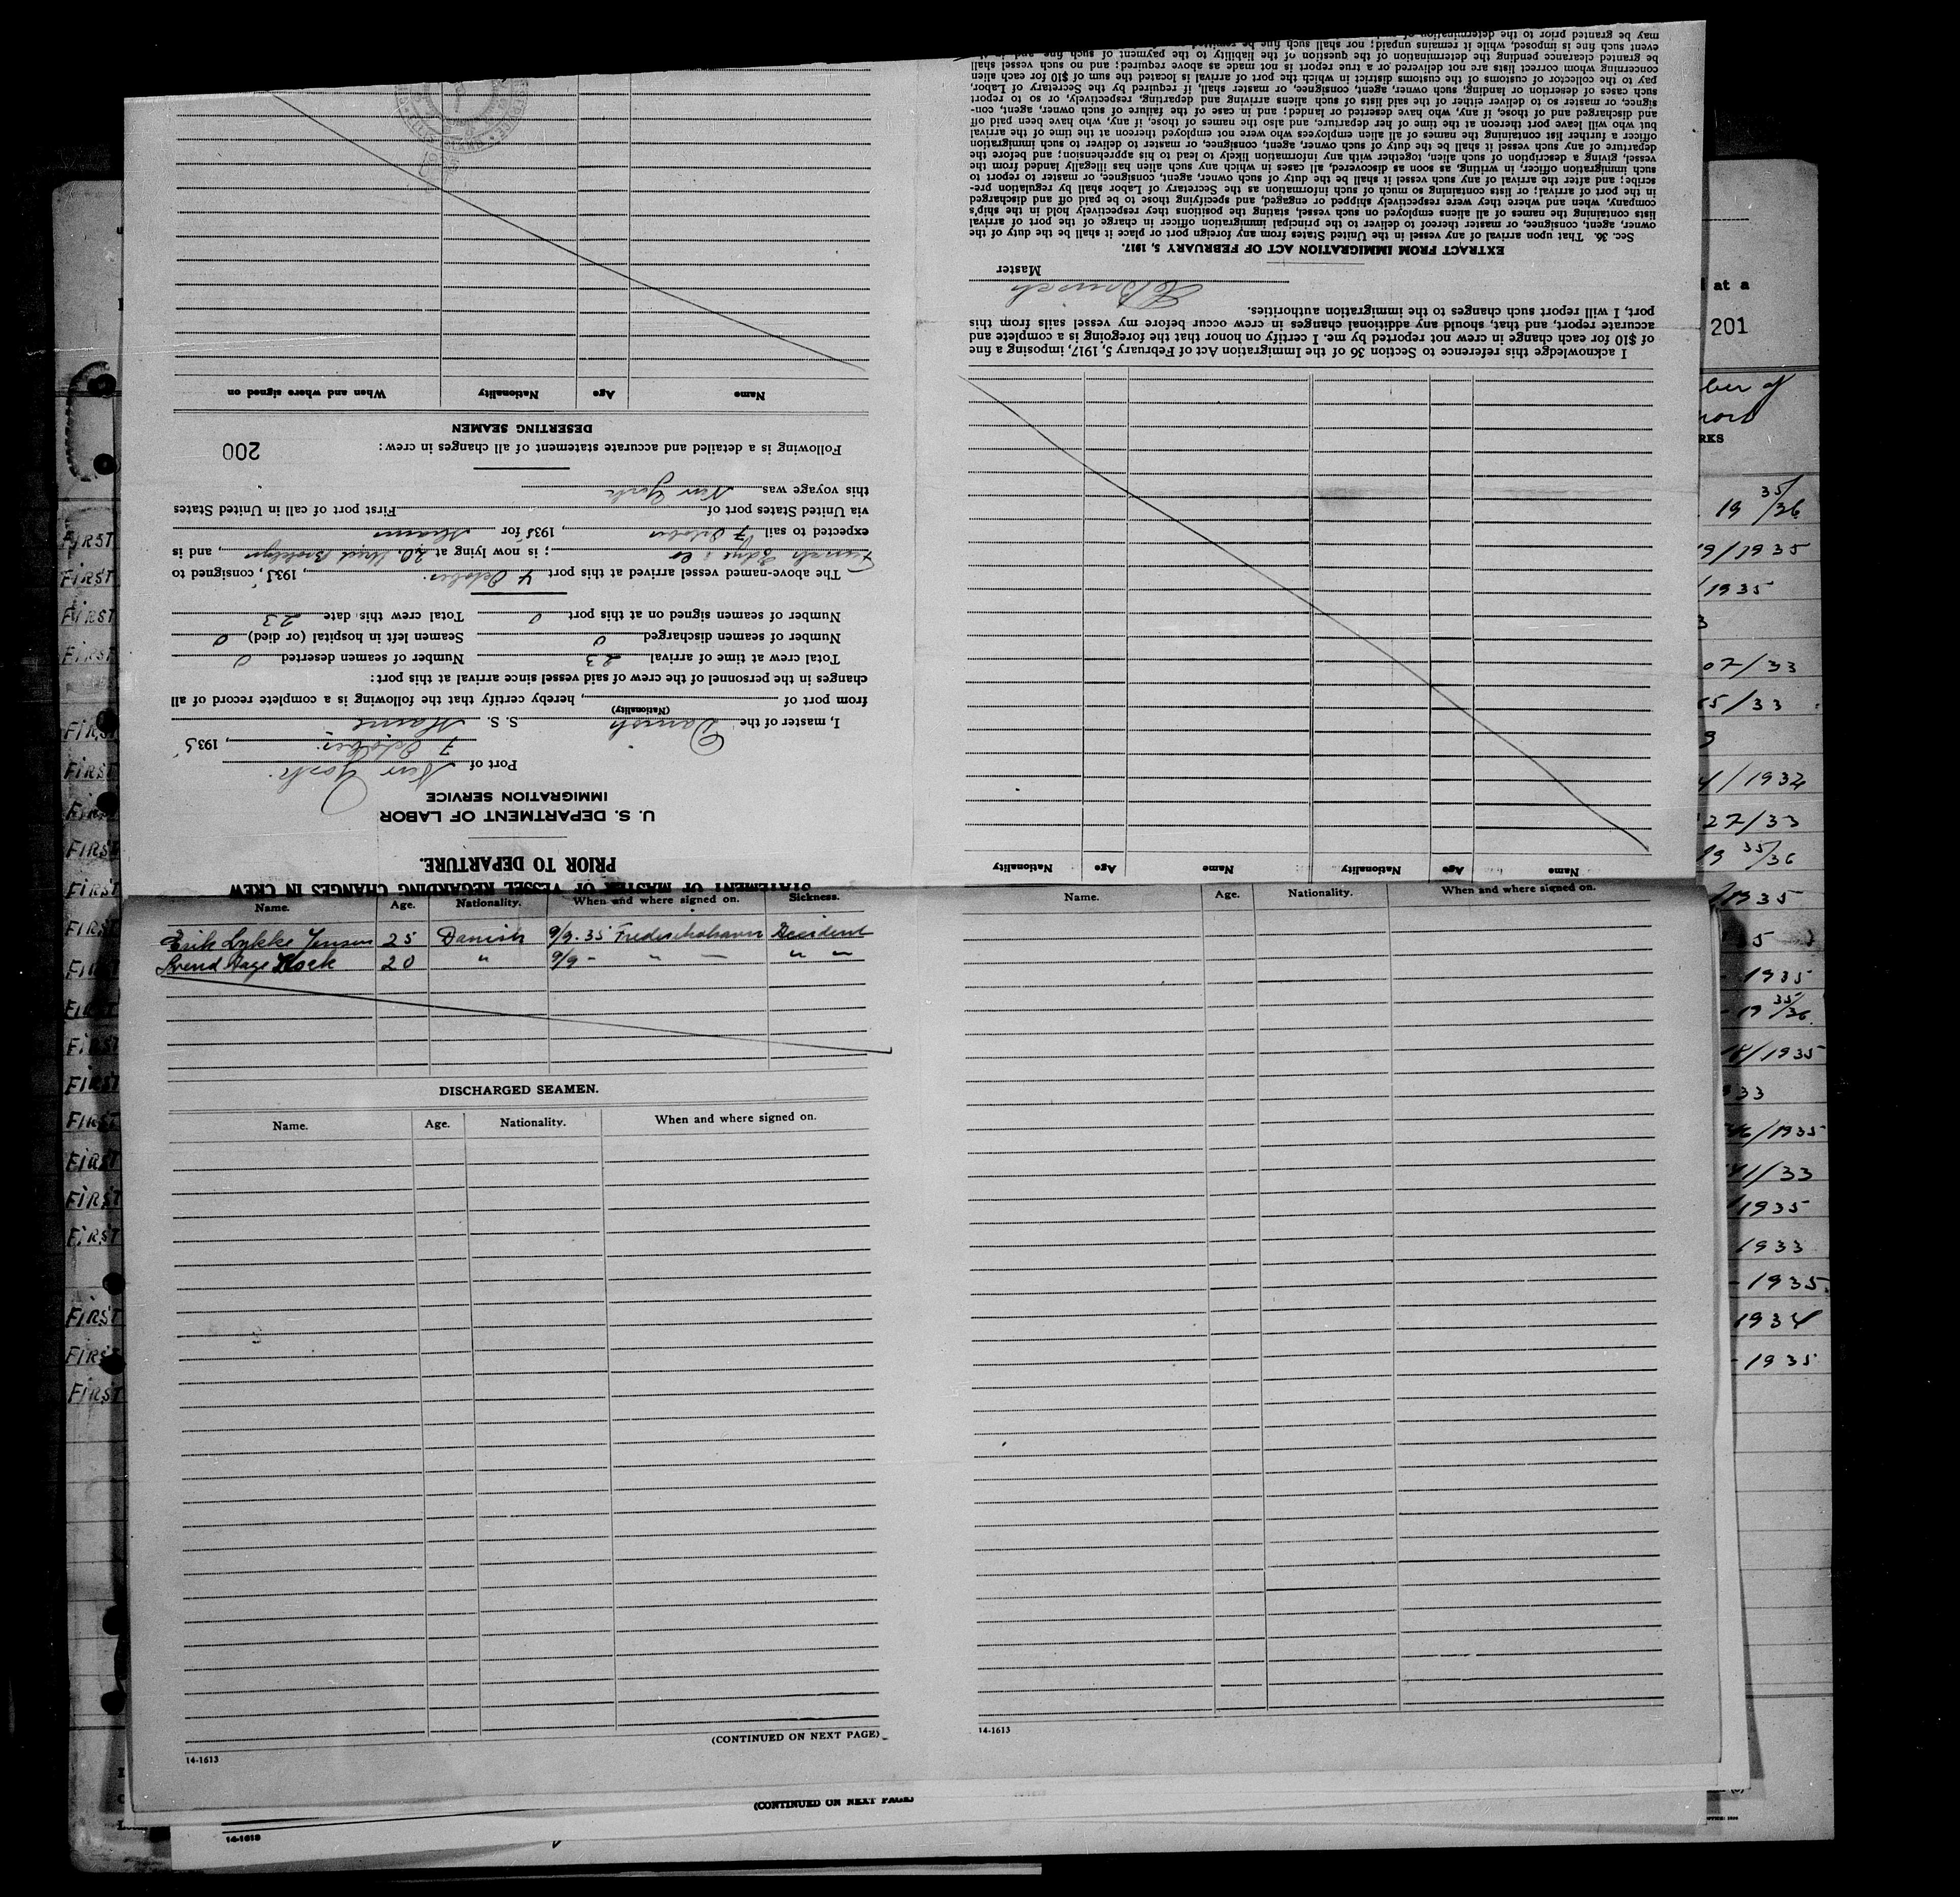 STATEMENT OF MASTER OF VESSEL REGARDING CHANGES IN CREW
PRIOR TO DEPARTURE.
U. S. DEPARTMENT OF LABOR
IMMIGRATION SERVICE
Port of New York.
7 October, 1935
I, master of the Danish S. S.
(Nationality)
from port of , hereby certify that the following is a complete record of all
changes in the personnel of the crew of said vessel since arrival at this port:
Total crew at time of arrival 23 Number of seamen deserted 0
Number of seamen discharged 0 Seamen left in hospital (or died) 0
Number of seamen signed on at this port 0 Total crew this date 23
The above-named vessel arrived at this port 4 October, 1935, consigned to
Funch Edye & Co ; is now lying at Brooklyn, and is
expected to sail 7 October, 1935 for
via United States port of First port of call in United States
this voyage was New York
Following is a detailed and accurate statement of all changes in crew:
200
DESERTING SEAMEN
Name Age Nationality When and where signed on
Name Age Nationality Name Age Nationality
I acknowledge this reference to Section 36 of the Immigration Act of February 5, 1917, imposing a fine
of $10 for each change in crew not reported by me. I certify on honor that the foregoing is a complete and
accurate report, and that, should any additional changes in crew occur before my vessel sails from this
port, I will report such changes to the immigration authorities.
Master
EXTRACT FROM IMMIGRATION ACT OF FEBRUARY 5, 1917.
Sec. 36. That upon arrival of any vessel in the United States from any foreign port or place it shall be the duty of the
owner, agent, consignee, or master thereof to deliver to the principal immigration officer in charge of the port of arrival
lists containing the names of all aliens employed on such vessel, stating the positions they respectively hold in the ship's
company, when and where they were respectively shipped or engaged, and specifying those to be paid off and discharged
in the port of arrival; or lists containing so much of such information as the Secretary of Labor shall by regulation pre-
scribe; and after the arrival of any such vessel it shall be the duty of such owner, agent, consignee, or master to report to
such immigration officer, in writing, as soon as discovered, all cases in which any such alien has illegally landed from the
vessel, giving a description of such alien, together with any information likely to lead to his apprehension; and before the
departure of any such vessel it shall be the duty of such owner, agent, consignee, or master to deliver to such immigration
officer a further list containing the names of all alien employees who were not employed thereon at the time of the arrival
but who will leave port thereon at the time of her departure, and also the names of those, if any, who have been paid off
and discharged and of those, if any, who have deserted or landed; and in case of the failure of such owner, agent, con-
signee, or master so to deliver either of the said lists of such aliens arriving and departing, respectively, or so to report
such cases of desertion or landing, such owner, agent, consignee, or master shall, if required by the Secretary of Labor,
pay to the collector of customs of the customs district in which the port of arrival is located the sum of $10 for each alien
concerning whom correct lists are not delivered or a true report is not made as above required; and no such vessel shall
be granted clearance pending the determination of the question of the liability to the payment of such fine and in the
event such fine is imposed, while it remains unpaid; nor shall such fine be remitted
may be granted prior to the determination of
Name. Age. Nationality. When and where signed on. Sickness.
Erik Lykke Jensen 25 Danish 9/9-35 Frederikshavn
Svend Aage Klock 20 " 9/9 - " — " "
DISCHARGED SEAMEN.
Name. Age. Nationality. When and where signed on.
(CONTINUED ON NEXT PAGE)
14-1613
Name. Age. Nationality. When and where signed on.
14-1613
(CONTINUED ON NEXT PAGE)
14-1613
FIRST
FIRST
FIRST
FIRST
FIRST
FIRST
FIRST
FIRST
FIRST
FIRST
FIRST
FIRST
FIRST
FIRST
FIRST
FIRST
FIRST
FIRST
FIRST
FIRST
FIRST
at a
201
19 35/36
9/1935
/1935
07/33
5/33
/1934
27/33
19 35/36
35
1935
19 35/36
/1935
33
/1935
/33
1935
1933
1935
1934
1935